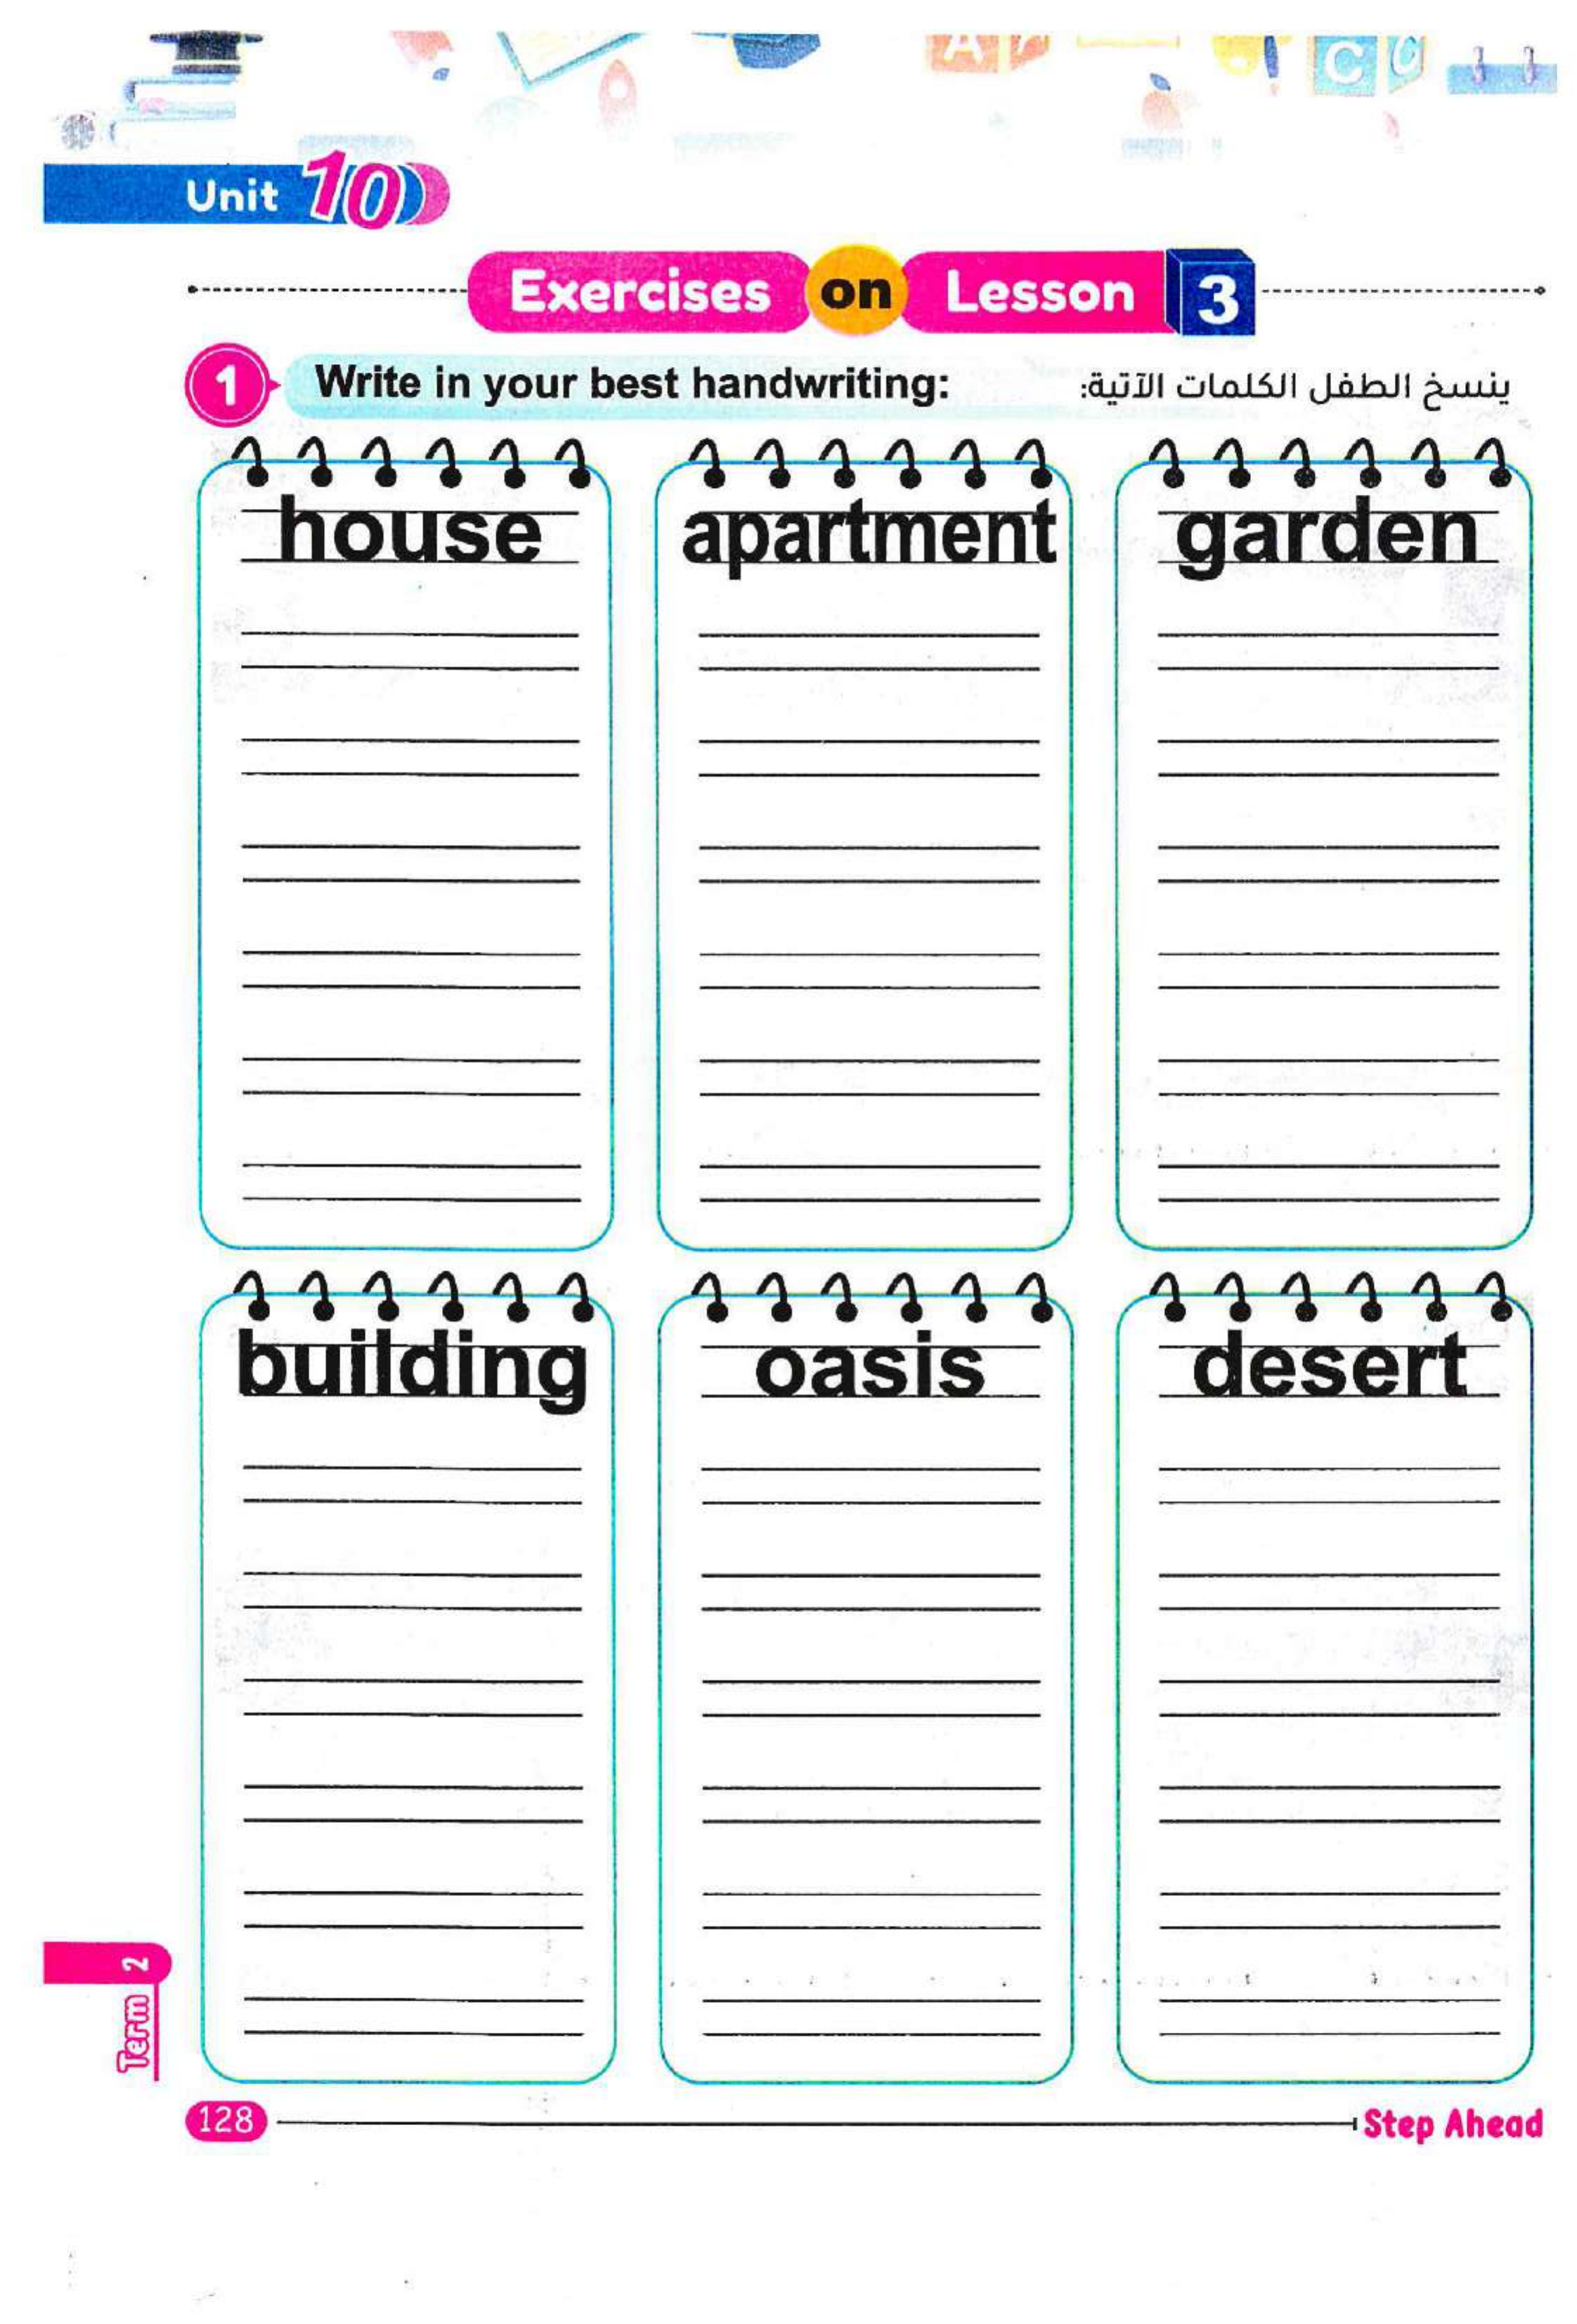 Unit 10
Exercises on Lesson 3
1 Write in your best handwriting:
ينسخ الطفل الكلمات الآتية:
house apartment garden
building oasis desert
Term 2
128
Step Ahead